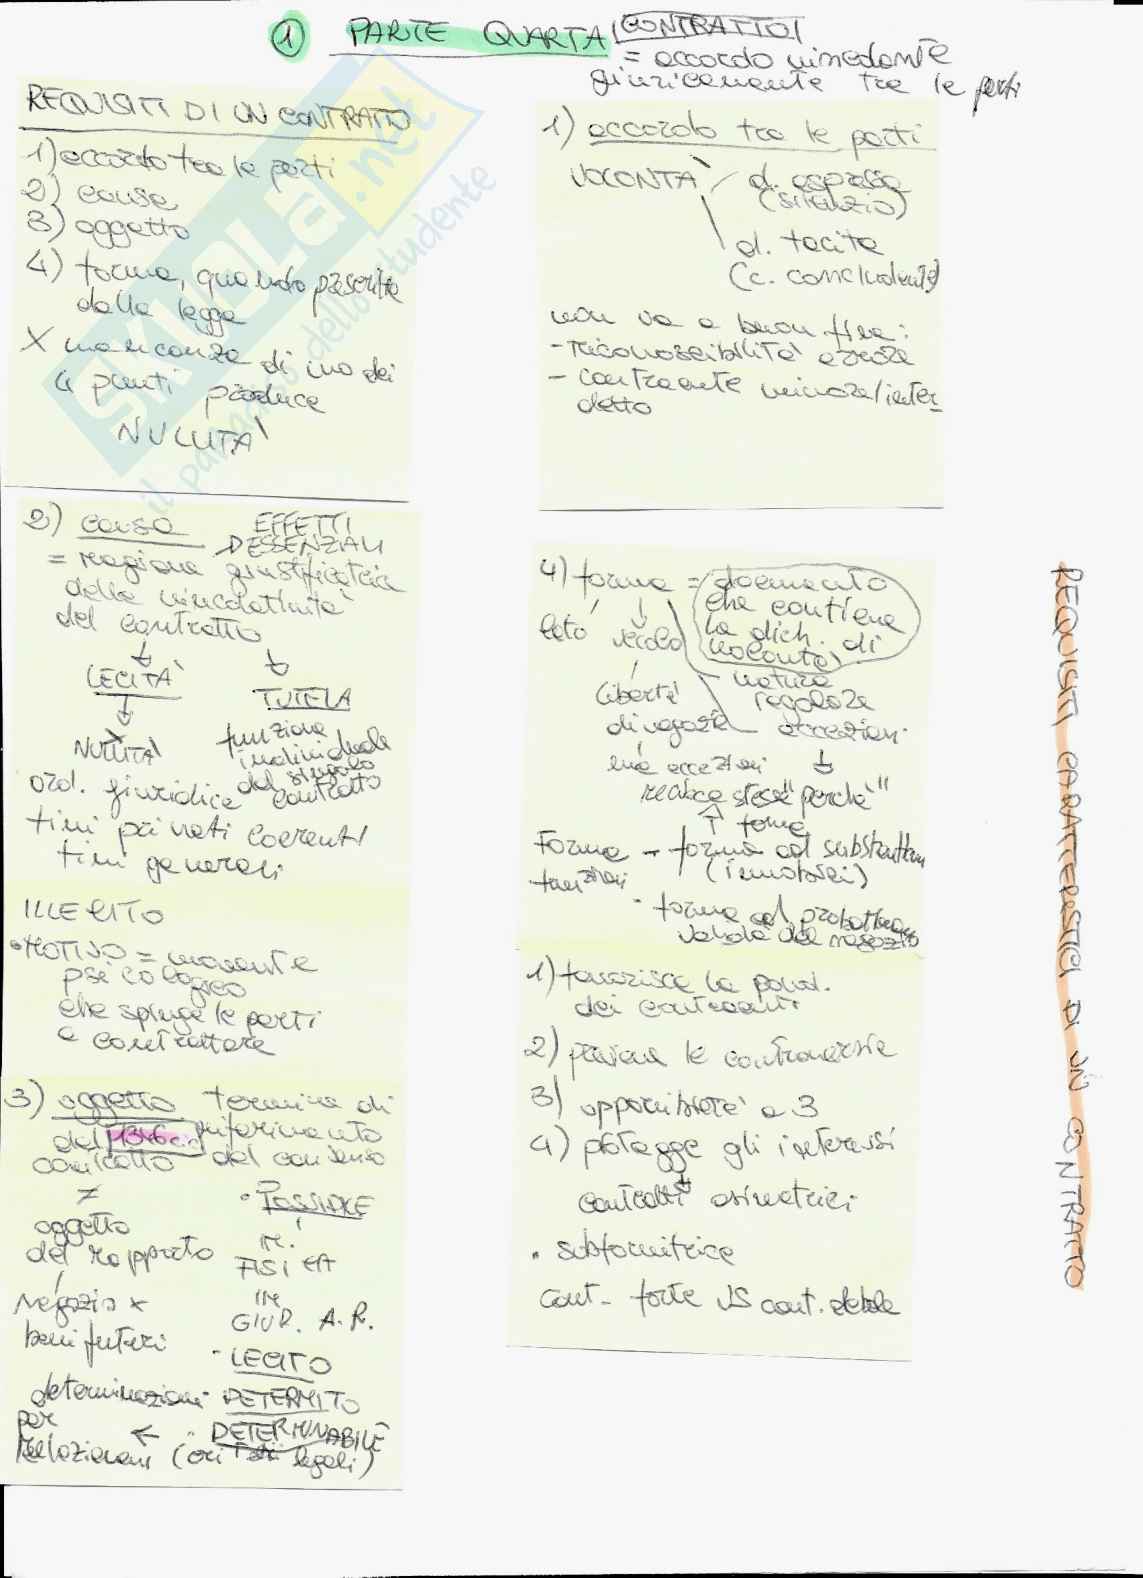 1 PARTE QUARTA CONTRATTO
= accordo vincolante
giuridicamente tra le parti
REQUISITI DI UN CONTRATTO
1) accordo tra le parti
2) causa
3) oggetto
4) forma, quando prescritta
dalla legge
X mancanza di uno dei
4 punti produce
NULLITÀ
SKUOLA.net
il paradiso dello studente
1) accordo tra le parti
VOLONTÀ d. espressa
(silenzio)
d. tacita
(c. concludente)
non va a buon fine:
- riconoscibilità errore
- contraente minore/inter-
detto
2) causa EFFETTI
ESSENZIALI
= ragione giustificatrice
della vincolatività
del contratto
LICEITÀ TUTELA
NULLITÀ funzione
individuale
del singolo
contratto
ord. giuridico
fini privati coerenti
fini generali
ILLECITO
• MOTIVO = movente
psicologico
che spinge le parti
a contrattare
3) oggetto termine di
del 1346 c.c. riferimento
contratto del consenso
≠
oggetto
del rapporto
negozio x
beni futuri
• POSSIBILE
in.
FISICA
in
GIUR. A.R.
• LECITO
DETERM.TO
DETERMINABILE
determinazioni
per
relazionem (criteri legali)
4) forma = documento
che contiene
la dich. di
volontà
secolo
libertà
natura
regolare
eccezioni
ma eccezioni
"perché"
forma
Forma - forma ad substantiam
(immobili)
funzioni
• forma ad probationem
validità del negozio
1) favorisce la pond.
dei contraenti
2) previene le controversie
3) opponibilità a 3
4) protegge gli interessi
contratti asimmetrici
• subfornitrice
cont. forte VS cont. debole
REQUISITI CARATTERISTICI DI UN CONTRATTO